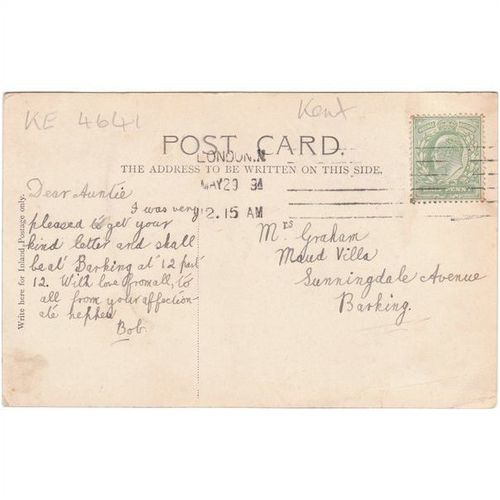 KE 4641
Kent
POST CARD.
THE ADDRESS TO BE WRITTEN ON THIS SIDE.
LONDON.N
MAY 29
2.15 AM
PENNY
Write here for Inland Postage only.
Dear Auntie
I was very
pleased to get your
kind letter and shall
be at Barking at 12 past
12. With love from all, to
all from your affection
ate nephew
Bob.
Mrs Graham
Maud Villa
Sunningdale Avenue
Barking.